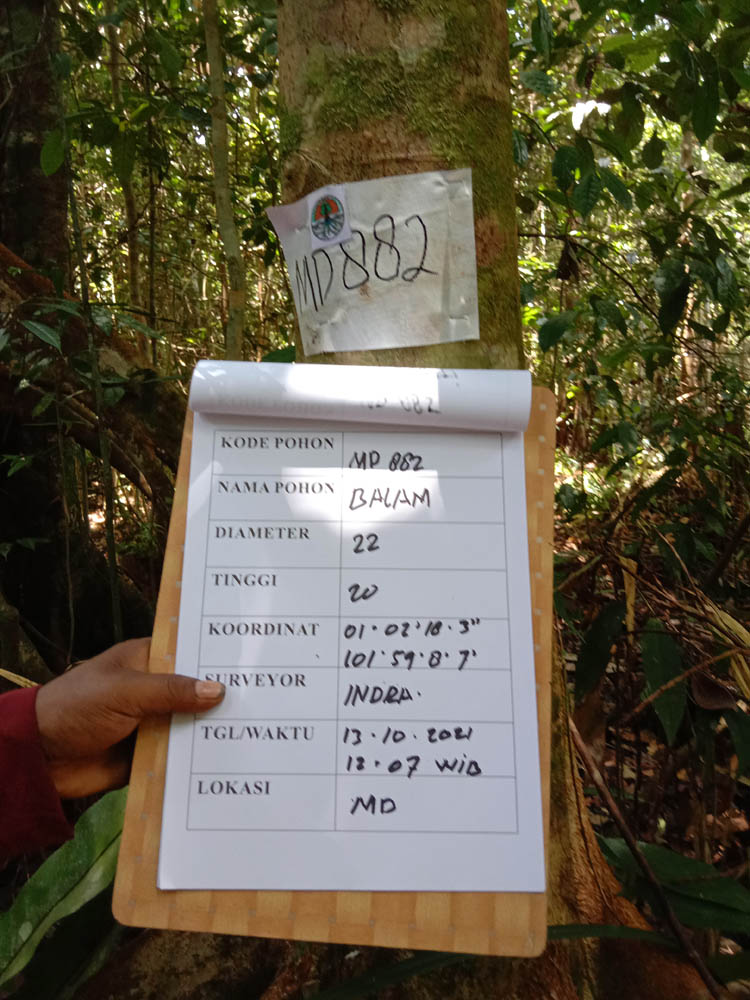 MD882
KODE POHON MD 882
NAMA POHON BALAM
DIAMETER 22
TINGGI 20
KOORDINAT 01·02'18·3"
101·59·8·7'
SURVEYOR INDRA.
TGL/WAKTU 13·10·2021
12·07 WIB
LOKASI MD